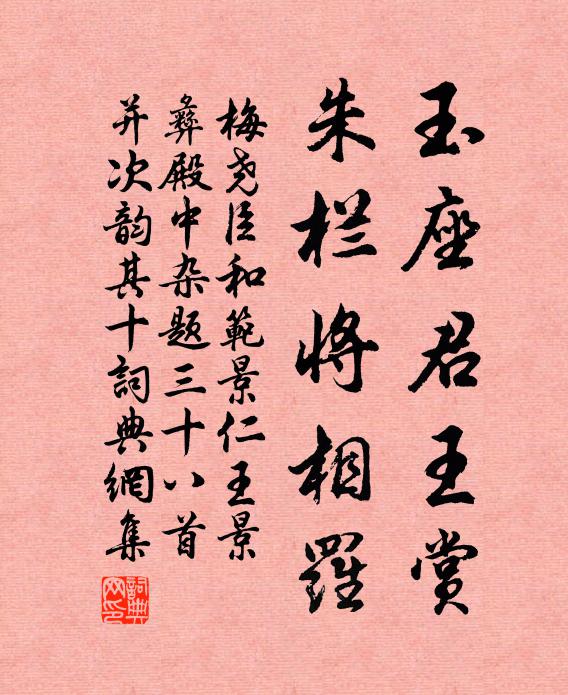 玉座君王赏
朱栏将相羅
梅尧臣和範景仁王景
彝殿中杂题三十八首
并次韵其十詞典網集